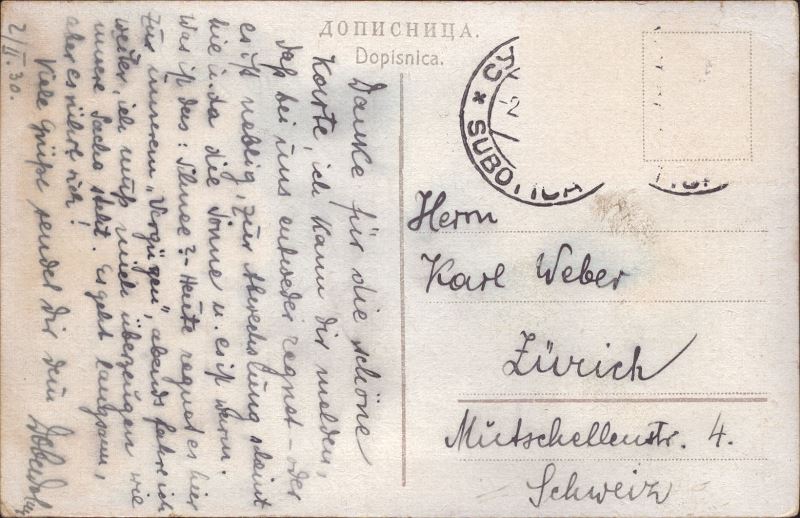 ДОПИСНИЦА.
Dopisnica.
SUBOTICA
Herrn
Karl Weber
Zürich
Mutschellenstr. 4.
Schweiz
Danke für die schöne
Karte, ich kann dir melden,
daß bei uns entweder regnet – oder
es ist neblig, zur Abwechslung scheint
hie u. da die Sonne u. es ist warm.
Was ist das: Schnee? – Heute regnet es hier
zur unserem „Vergügen“, abends fahre ich
weiter, ich muß mich überzeugen wie
unsere Sache steht. Es geht langsam,
aber es rührt sich!
Viele Grüße sendet dir dein
2/II. 30.